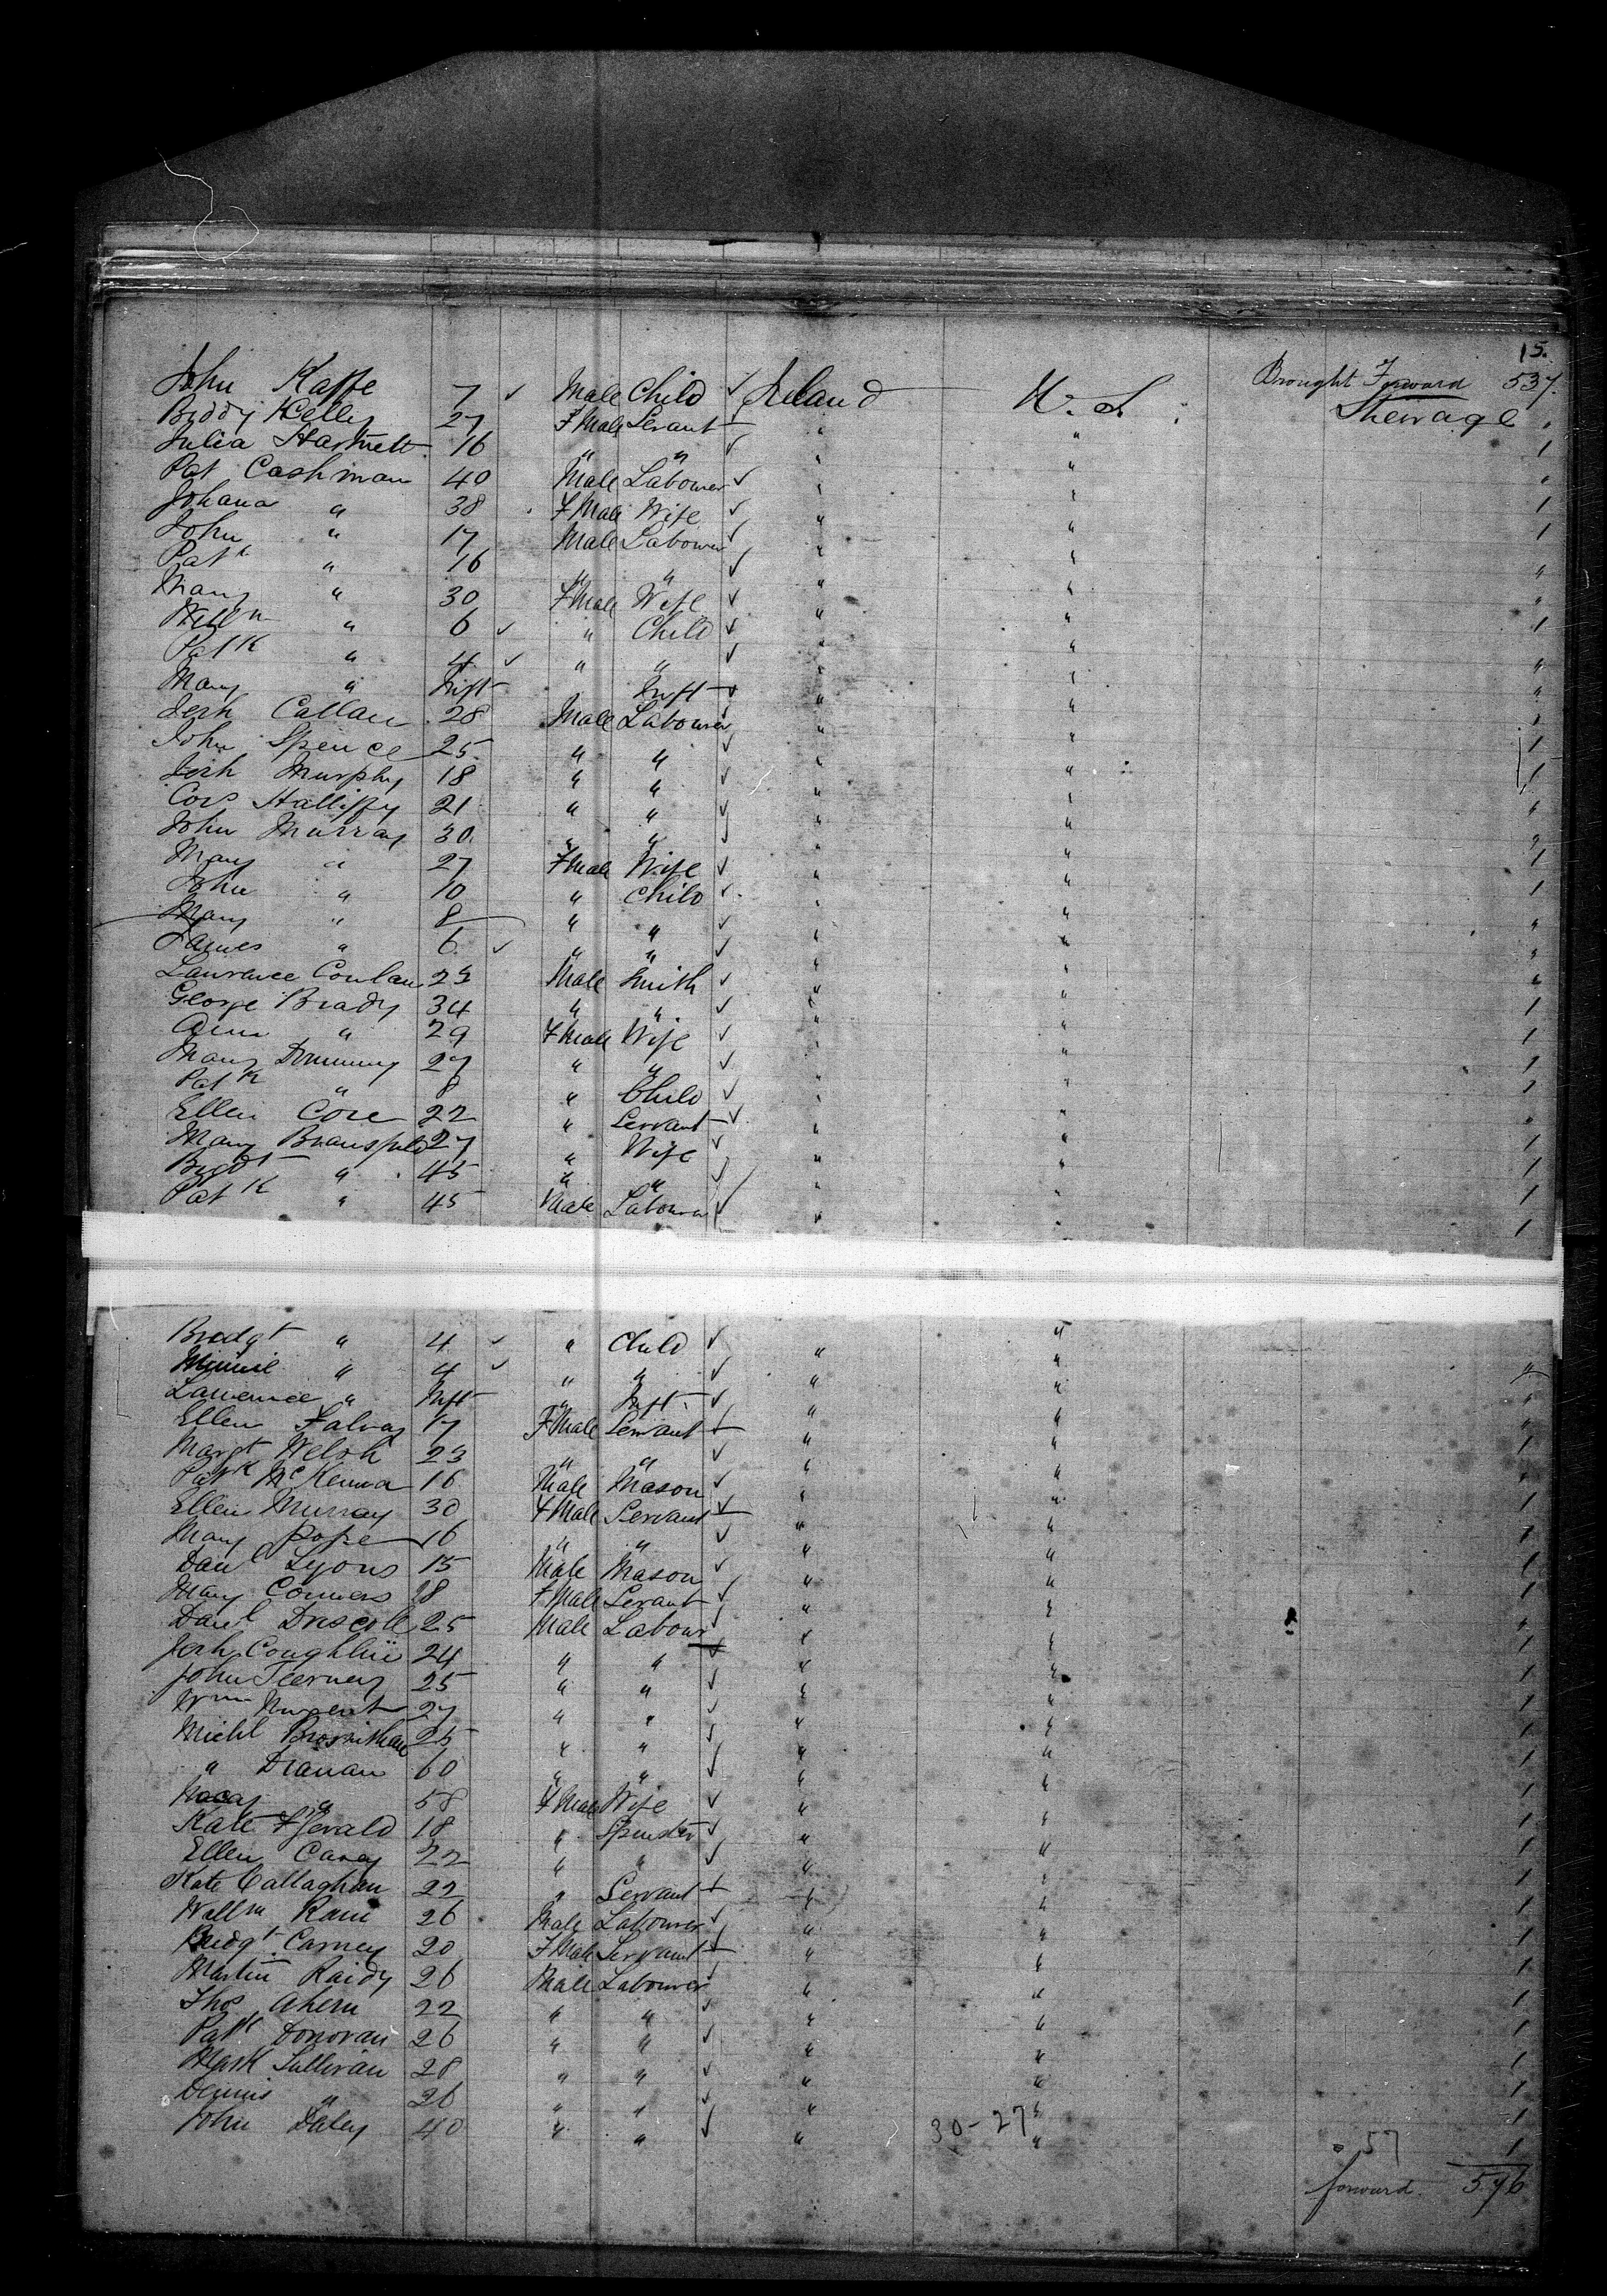 15.
Brought Forward 537
John Kaffe 7 ✓ Male Child ✓ Ireland U. S. Steerage "
Biddy Kelly 27 FMale Servant ✓ " " 1
Julia Hartnett 16 " " ✓ " " "
Pat Cashman 40 Male Labourer ✓ " " 1
Johana " 38 FMale Wife ✓ " " 1
John " 17 Male Labourer ✓ " " "
Patk " 16 " " ✓ " " "
Mary " 30 FMale Wife ✓ " " 1
Willm " 6 ✓ " Child ✓ " " "
Patk " 4 ✓ " " ✓ " " "
Mary " Inft Inft ✓ " "
Jerh Callan 28 Male Labourer ✓ " " 1
John Spence 25 " " ✓ " " 1
Jerh Murphy 18 " " ✓ " " "
Cors 21 " " ✓ " "
John Murray 30 " " ✓ " " 1
Mary " 27 FMale Wife ✓ " " 1
John " 10 " Child ✓ " " "
Mary " 8 " " ✓ " " "
James " 6 ✓ " " ✓ " " "
Laurance Conlan 23 Male Smith ✓ " " 1
George Brady 34 " " ✓ " " 1
Ann " 29 FMale Wife ✓ " " 1
Mary 27 " " ✓ " " 1
Patk " 8 " Child ✓ " " "
Ellen 22 " Servant ✓ " " 1
Mary 27 " Wife ✓ " " 1
Bridt " 45 " " ✓ " " 1
Patk " 45 Male Labourer ✓ " " 1
Bridgt " 4 ✓ " Child ✓ " " "
Minnie " 4 ✓ " " ✓ " " "
Lawrence " Inft " Inft ✓ " " "
Ellen Falvay 17 FMale Servant ✓ " " 1
Margt Welsh 23 " " ✓ " "
Patk McKenna 16 Male Mason ✓ " " 1
Ellen Murray 30 FMale Servant ✓ " " 1
Mary Pope 16 " " ✓ " " 1
Danl Lyons 15 Male Mason ✓ " " 1
Mary Connors 18 FMale Servant ✓ " " 1
Danl Driscoll 25 Male Labour ✓ " " 1
Jerh Coughlin 24 " " ✓ " " 1
John Teerney 25 " " ✓ " " 1
Wm Nugent 27 " " ✓ " " 1
Michl 25 " " ✓ " " 1
" 60 " " ✓ " " 1
58 FMale Wife ✓ " " 1
Kate Fgerald 18 " Spinster ✓ " " 1
Ellen Carey 22 " " ✓ " " 1
Kate Callaghan 22 " Servant ✓ " " 1
Willm 26 Male Labourer ✓ " " 1
Bridgt Carney 20 FMale Servant ✓ " " 1
Martin Raidy 26 Male Labourer ✓ " " 1
Thos Ahern 22 " " ✓ " " 1
Patk Donovan 26 " " ✓ " " 1
Mark Sullivan 28 " " ✓ " " 1
Dennis " 26 " " ✓ " " 1
John Daley 40 " " ✓ " " 1
30-27
57
forward 576